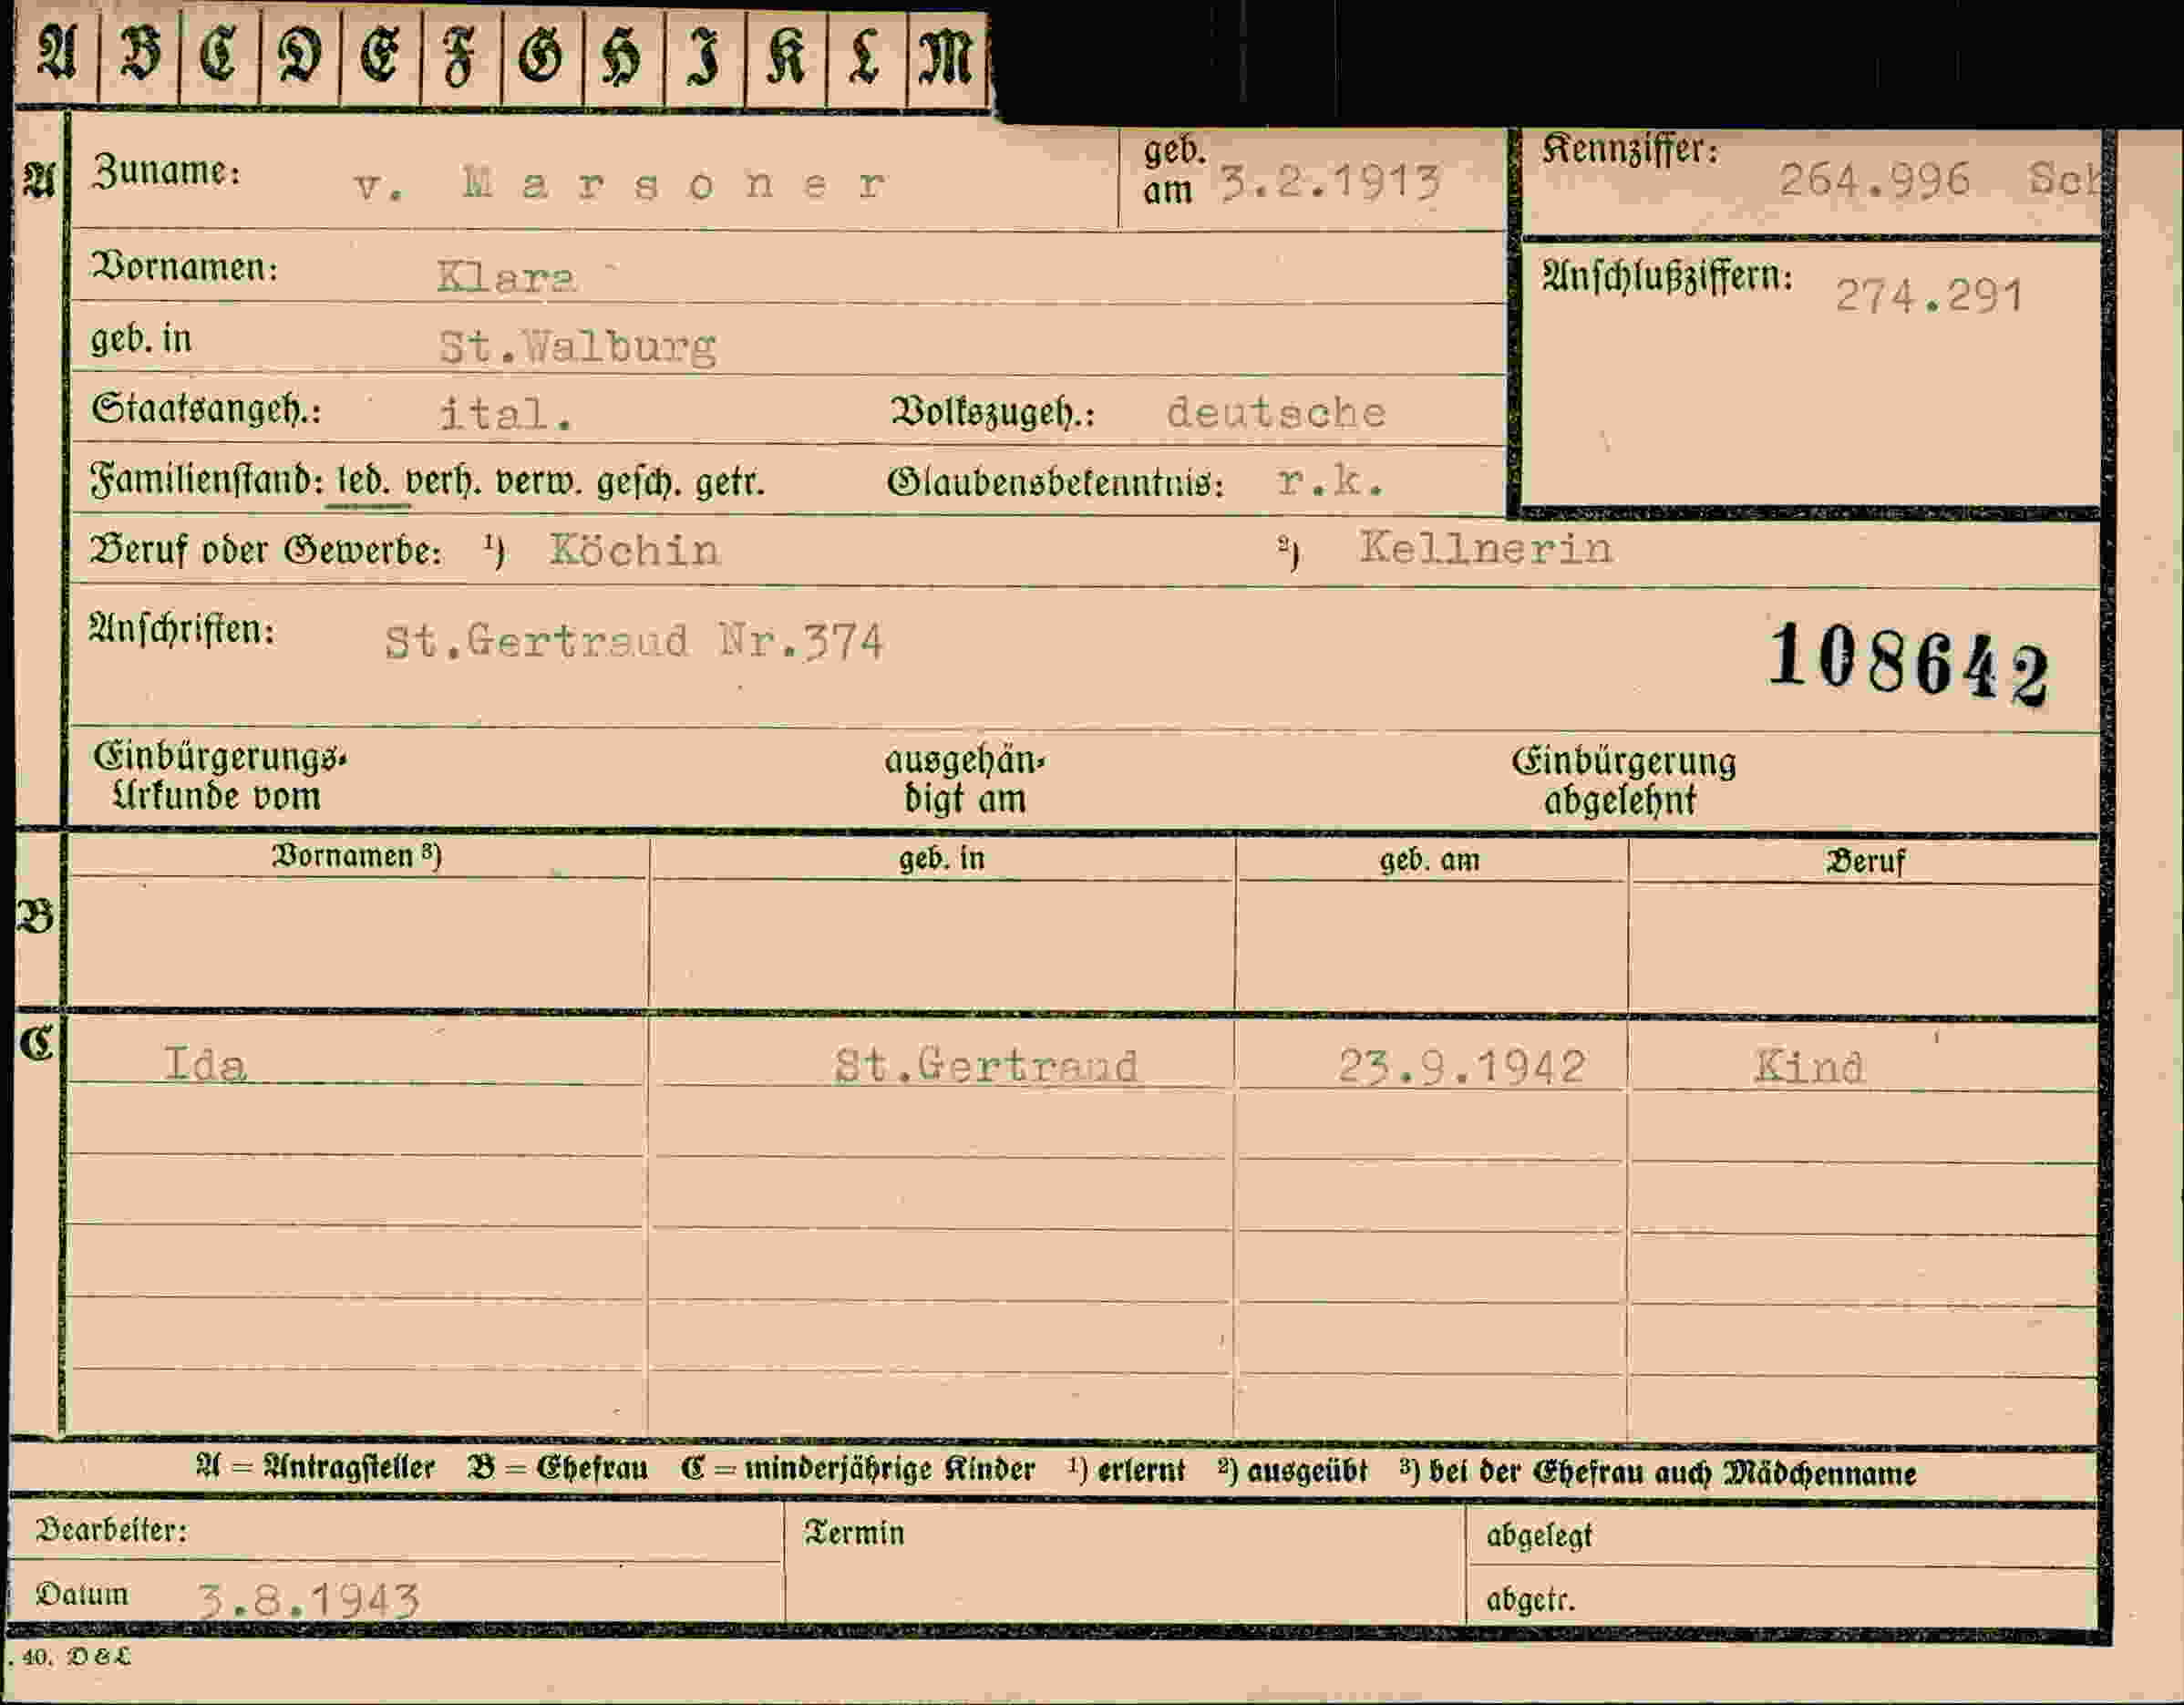 A B C D E F G H I K L M
A Zuname: v. Marsoner geb. am 3.2.1913 Kennziffer: 264.996 Sch
Vornamen: Klara Anschlußziffern: 274.291
geb. in St.Walburg
Staatsangeh.: ital. Volkszugeh.: deutsche
Familienstand: led. verh. verw. gesch. getr. Glaubensbekenntnis: r.k.
Beruf oder Gewerbe: ¹) Köchin ²) Kellnerin
Anschriften: St.Gertraud Nr.374 108642
Einbürgerungs-
Urkunde vom
ausgehän-
digt am
Einbürgerung
abgelehnt
Vornamen ³) geb. in geb. am Beruf
B
C Ida St.Gertraud 23.9.1942 Kind
A = Antragsteller B = Ehefrau C = minderjährige Kinder ¹) erlernt ²) ausgeübt ³) bei der Ehefrau auch Mädchenname
Bearbeiter: Termin abgelegt
Datum 3.8.1943 abgetr.
. 40. D & L